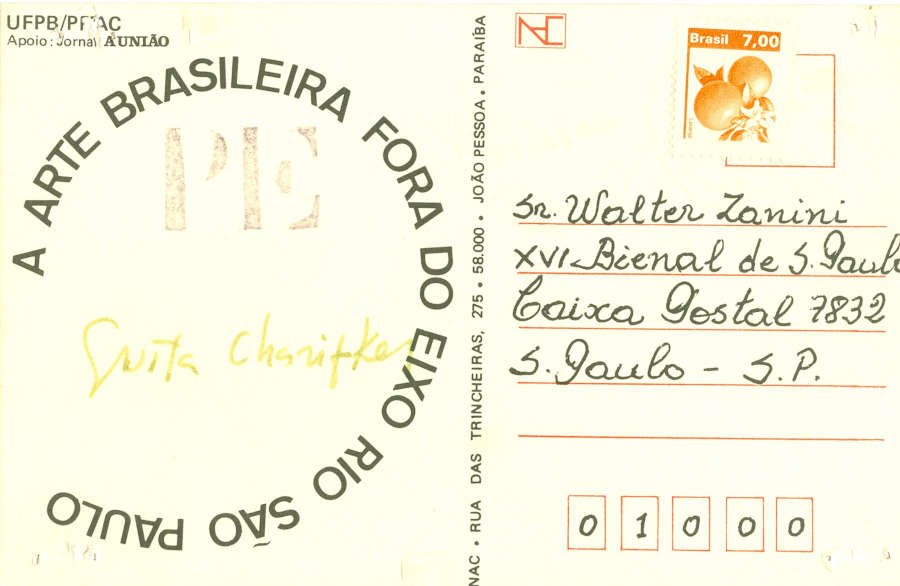 UFPB/PRAC
Apoio: Jornal A UNIÃO
A ARTE BRASILEIRA FORA DO EIXO RIO SÃO PAULO
PE
NAC • RUA DAS TRINCHEIRAS, 275 • 58.000 • JOÃO PESSOA. PARAÍBA
NAC
Brasil 7,00
Sr. Walter Zanini
XVI Bienal de S. Paulo
Caixa Postal 7832
S. Paulo - S.P.
0 1 0 0 0